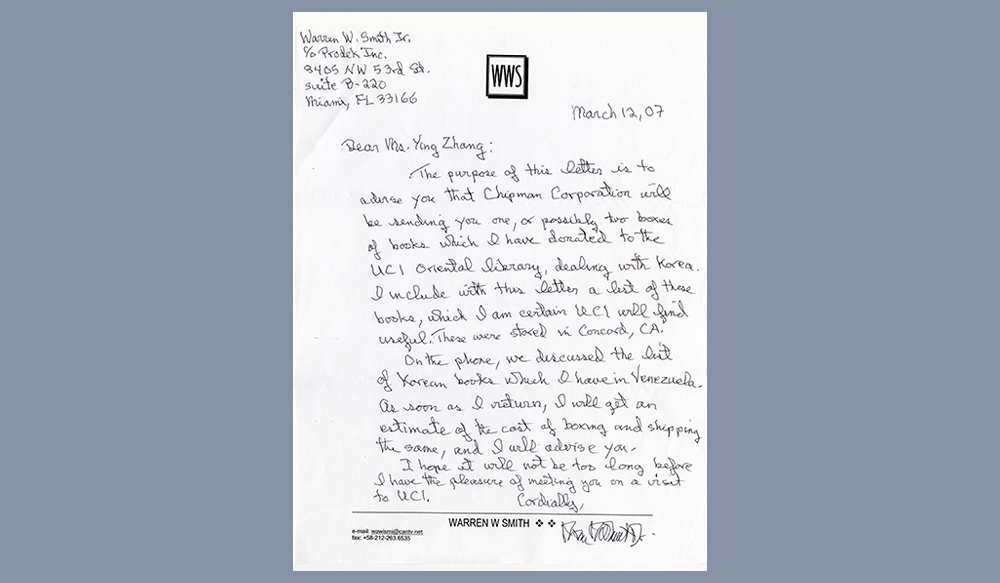 Warren W. Smith Jr.
c/o Prodek Inc.
8405 NW 53rd St.
suite B-220
Miami, FL 33166
WWS
March 12, 07
Dear Ms. Ying Zhang:
The purpose of this letter is to
advise you that Chipman Corporation will
be sending you one, or possibly two boxes
of books which I have donated to the
UCI Oriental library, dealing with Korea.
I include with this letter a list of these
books, which I am certain UCI will find
useful. These were stored in Concord, CA.
On the phone, we discussed the list
of Korean books which I have in Venezuela.
As soon as I return, I will get an
estimate of the cost of boxing and shipping
the same, and I will advise you.
I hope it will not be too long before
I have the pleasure of meeting you on a visit
to UCI.
Cordially,
WARREN W SMITH
e-mail: wawismi@cantv.net
fax: +58-212-263.6535